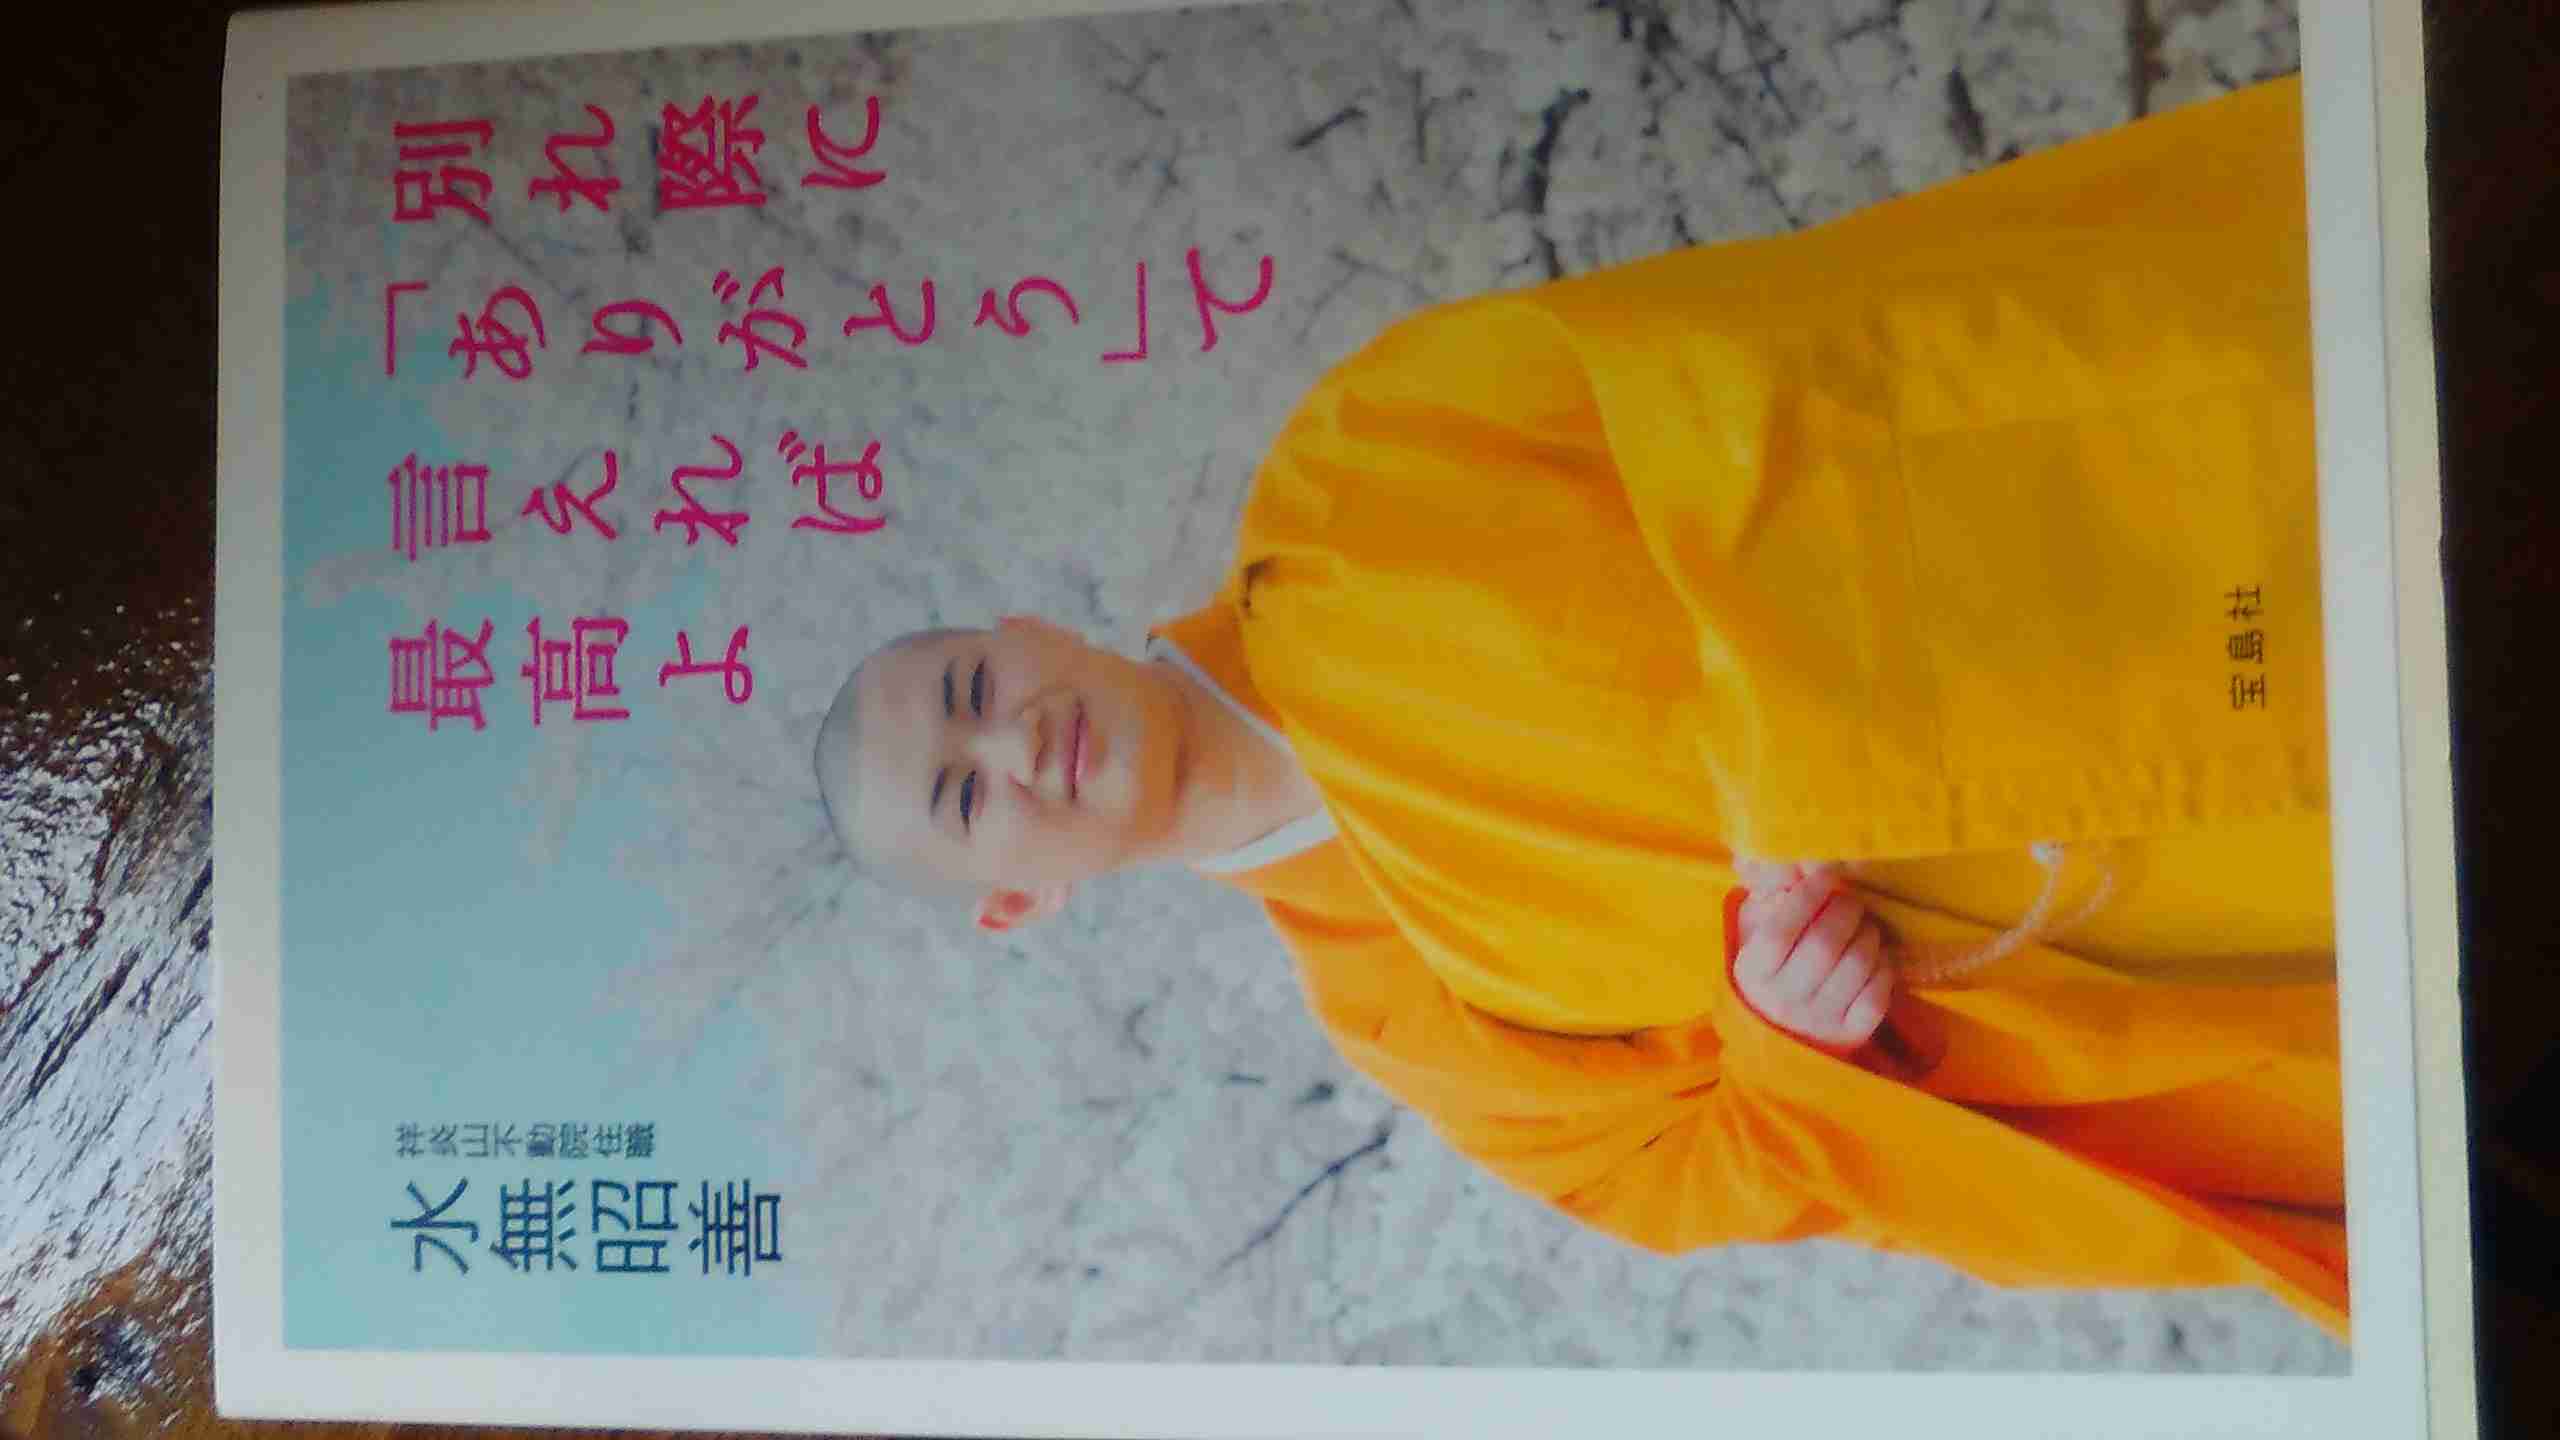 別れ際に
「ありがとう」て
言えれば
最高よ
祥炎山不動院住職
水無昭善
宝島社